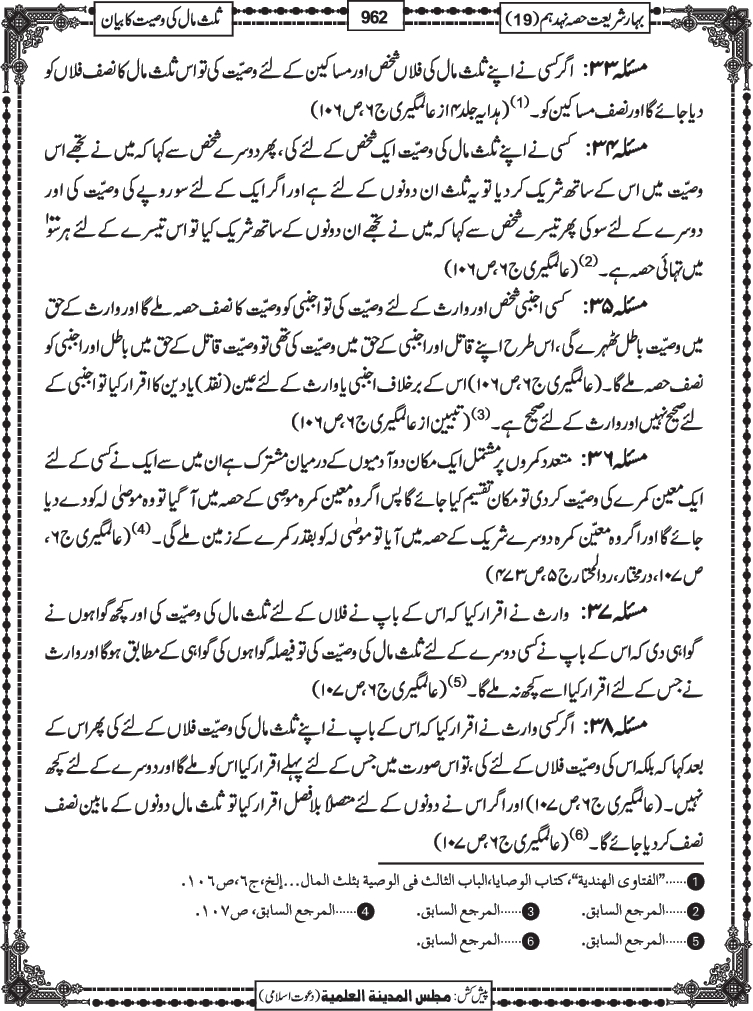 بہارِ شریعت حصہ نہدہم (19)
962
ثلث مال کی وصیت کا بیان
مسئلہ ۳۳: اگر کسی نے اپنے ثلث مال کی فلاں شخص اور مساکین کے لئے وصیّت کی تو اس ثلث مال کا نصف فلاں کو
دیا جائے گا اور نصف مساکین کو۔(1) (ہدایہ جلد ۴ از عالمگیری ج۶، ص۱۰۶)
مسئلہ ۳۴: کسی نے اپنے ثلث مال کی وصیّت ایک شخص کے لئے کی، پھر دوسرے شخص سے کہا کہ میں نے تجھے اس
وصیّت میں اس کے ساتھ شریک کر دیا تو یہ ثلث ان دونوں کے لئے ہے اور اگر ایک کے لئے سو روپے کی وصیت کی اور
دوسرے کے لئے سو کی پھر تیسرے شخص سے کہا کہ میں نے تجھے ان دونوں کے ساتھ شریک کیا تو اس تیسرے کے لئے ہر سَو
میں تہائی حصہ ہے۔(2) (عالمگیری ج۶، ص۱۰۶)
مسئلہ ۳۵: کسی اجنبی شخص اور وارث کے لئے وصیّت کی تو اجنبی کو وصیّت کا نصف حصہ ملے گا اور وارث کے حق
میں وصیّت باطل ٹھہرے گی، اس طرح اپنے قاتل اور اجنبی کے حق میں وصیّت کی تھی تو وصیّت قاتل کے حق میں باطل اور اجنبی کو
نصف حصہ ملے گا۔ (عالمگیری ج۶، ص۱۰۶) اس کے برخلاف اجنبی یا وارث کے لئے عین (نقد) یا دین کا اقرار کیا تو اجنبی کے
لئے صحیح نہیں اور وارث کے لئے صحیح ہے۔(3) (تبیین از عالمگیری ج۶، ص۱۰۶)
مسئلہ ۳۶: متعدد کمروں پر مشتمل ایک مکان دو آدمیوں کے درمیان مشترک ہے ان میں سے ایک نے کسی کے لئے
ایک معین کمرے کی وصیّت کردی تو مکان تقسیم کیا جائے گا پس اگر وہ معین کمرہ موصِی کے حصہ میں آگیا تو وہ موصٰی لہ کو دے دیا
جائے گا اور اگر وہ معیّن کمرہ دوسرے شریک کے حصہ میں آیا تو موصٰی لہ کو بقدر کمرے کے زمین ملے گی۔(4) (عالمگیری ج۶،
ص۱۰۷، درمختار، ردالمحتار ج۵، ص۴۷۳)
مسئلہ ۳۷: وارث نے اقرار کیا کہ اس کے باپ نے فلاں کے لئے ثلث مال کی وصیّت کی اور کچھ گواہوں نے
گواہی دی کہ اس کے باپ نے کسی دوسرے کے لئے ثلث مال کی وصیّت کی تو فیصلہ گواہوں کی گواہی کے مطابق ہوگا اور وارث
نے جس کے لئے اقرار کیا اسے کچھ نہ ملے گا۔(5) (عالمگیری ج۶، ص۱۰۷)
مسئلہ ۳۸: اگر کسی وارث نے اقرار کیا کہ اس کے باپ نے اپنے ثلث مال کی وصیّت فلاں کے لئے کی پھر اس کے
بعد کہا کہ بلکہ اس کی وصیّت فلاں کے لئے کی، تو اس صورت میں جس کے لئے پہلے اقرار کیا اس کو ملے گا اور دوسرے کے لئے کچھ
نہیں۔ (عالمگیری ج۶، ص۱۰۷) اور اگر اس نے دونوں کے لئے متصلاً بلا فصل اقرار کیا تو ثلث مال دونوں کے مابین نصف
نصف کر دیا جائے گا۔(6) (عالمگیری ج۶، ص۱۰۷)
1......"الفتاوى الهندية"، كتاب الوصايا، الباب الثالث فى الوصية بثلث المال...إلخ، ج۶، ص۱۰۶.
2......المرجع السابق. 3......المرجع السابق. 4......المرجع السابق، ص۱۰۷.
5......المرجع السابق. 6......المرجع السابق.
پیش کش: مجلس المدينة العلمية (دعوت اسلامی)